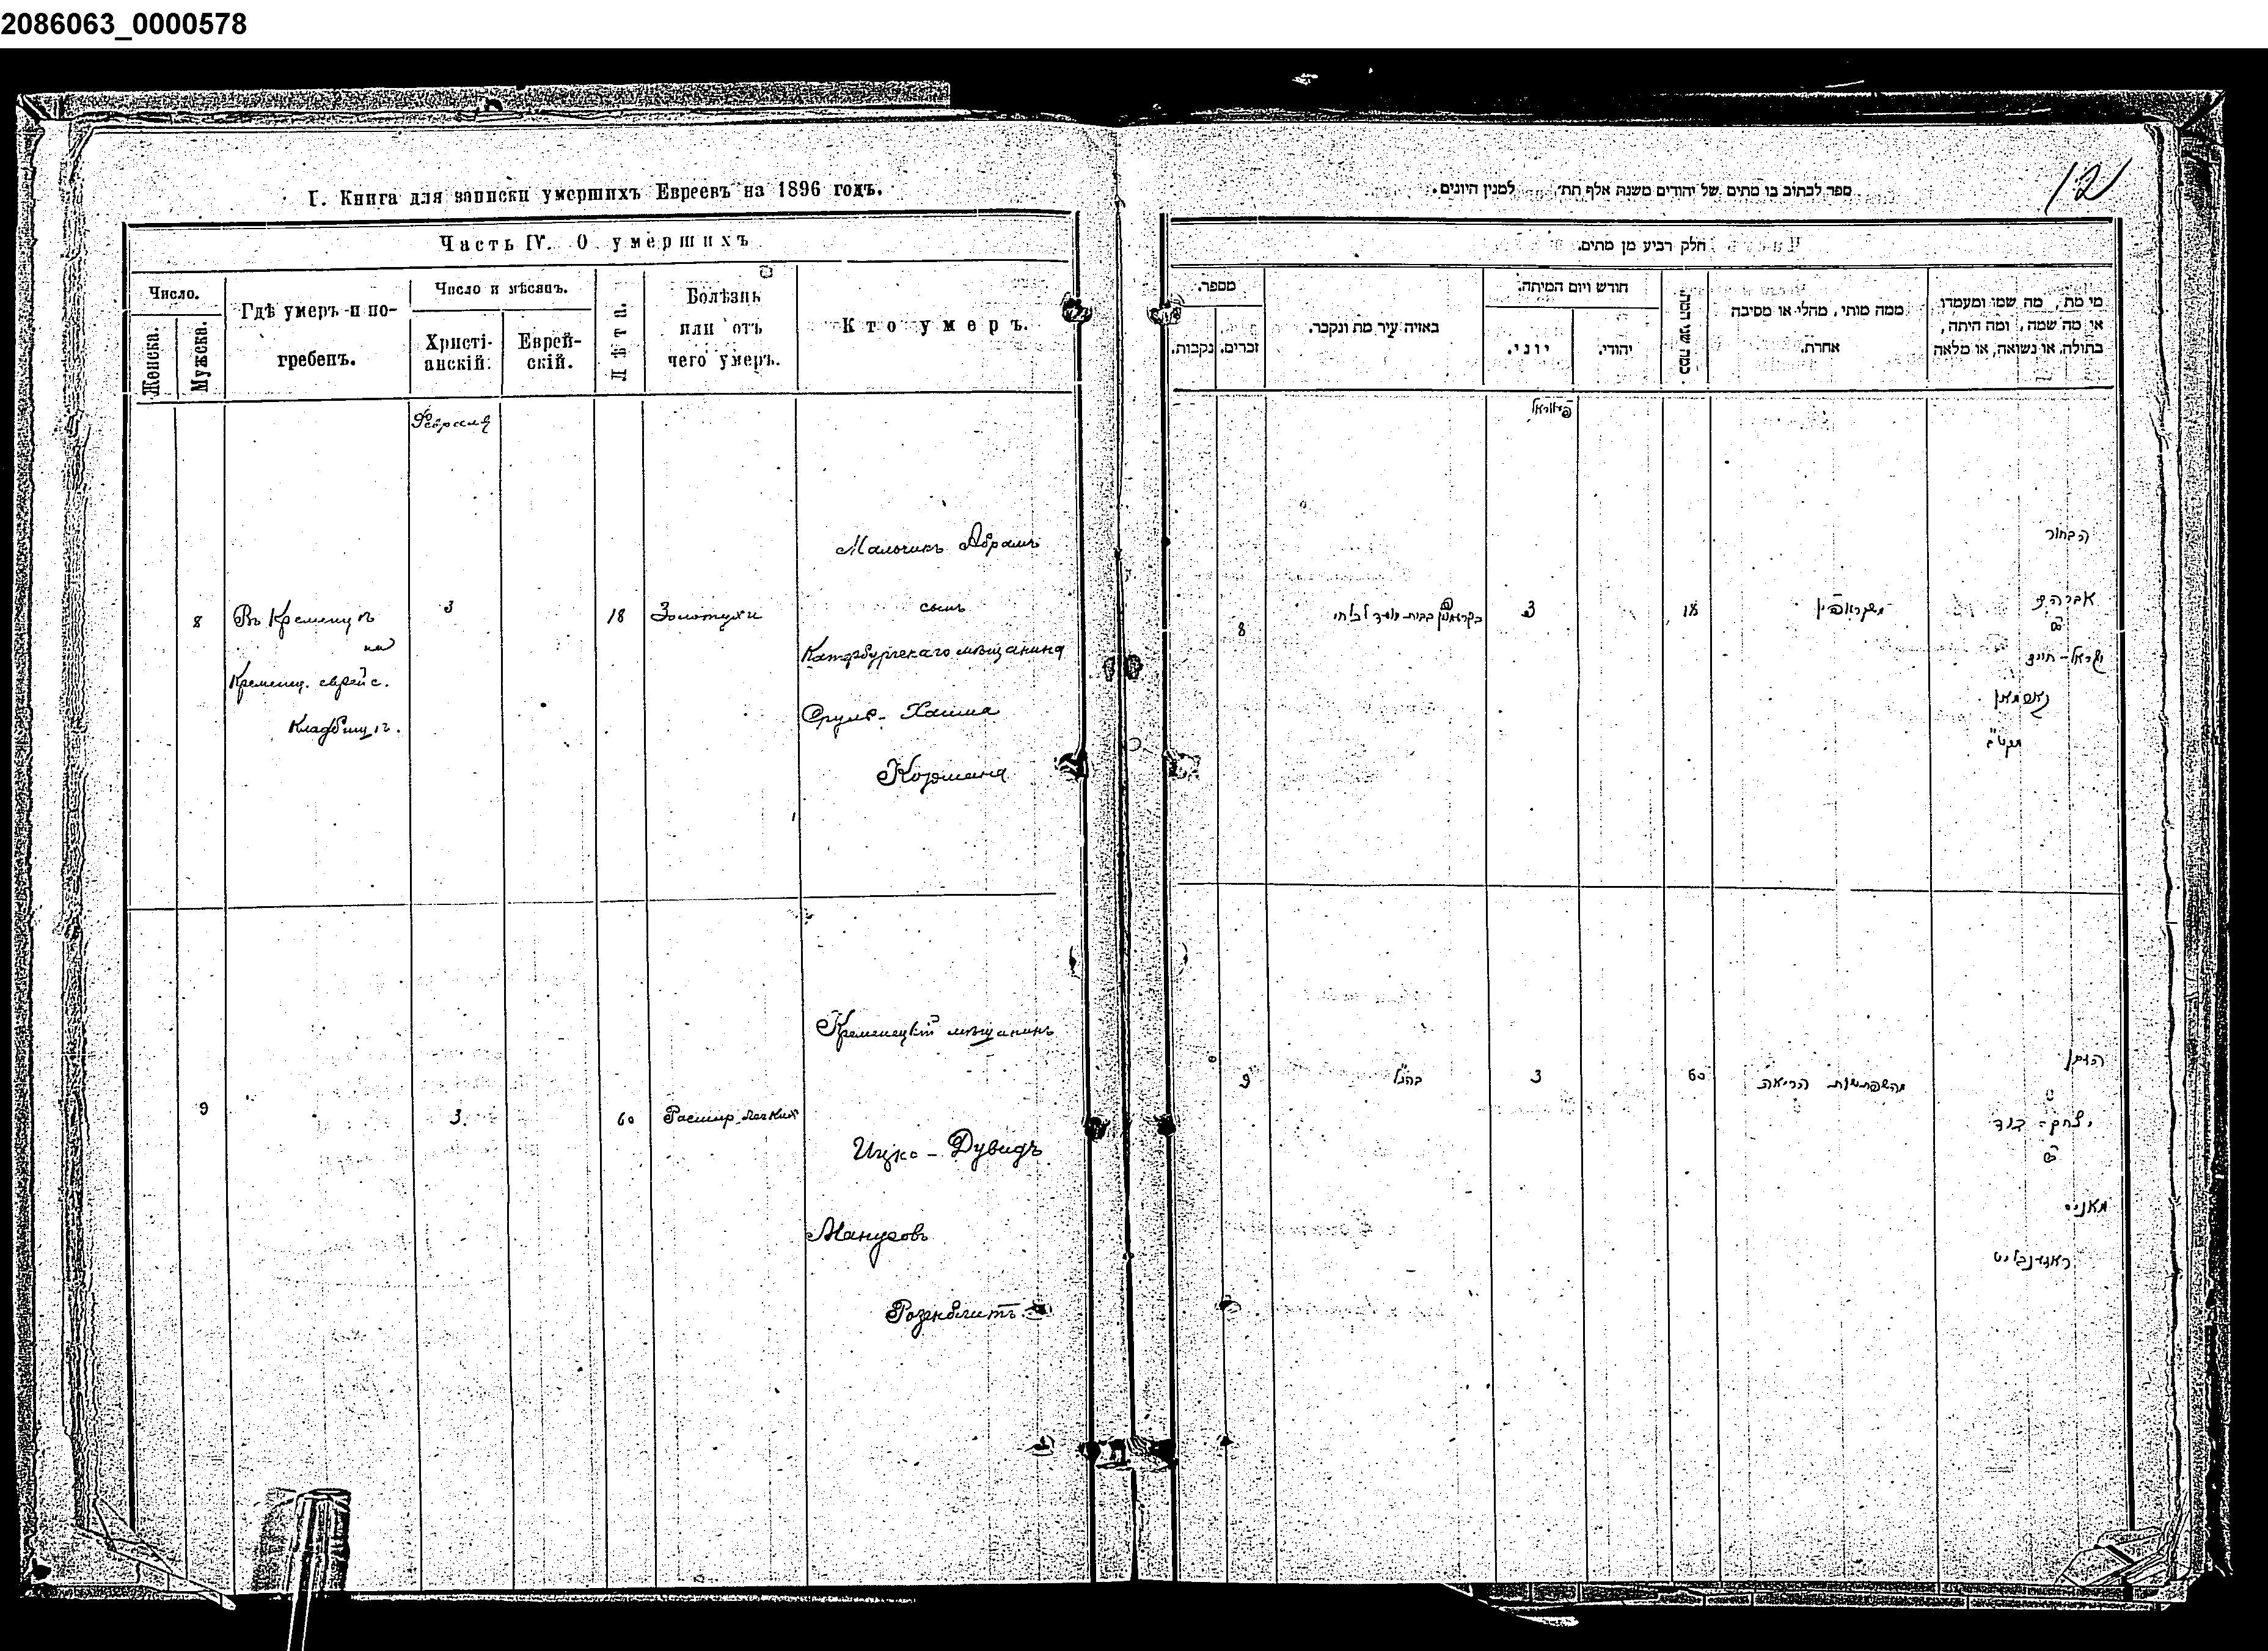 2086063_0000578
I. Книга для записки умершихъ Евреевъ на 1896 годъ.
Часть IV. О умершихъ
Число.
Женска.
Мужска.
Гдѣ умеръ и по-
гребенъ.
Число и мѣсяцъ.
Христі-
анскій.
Еврей-
скій.
Лѣта.
Болѣзнь
или отъ
чего умеръ.
Кто умеръ.
Февраля
8
Въ Кременцѣ
на
Кременец. еврейс.
Кладбищѣ.
3
18
Золотухи
Мальчикъ Абрамъ
сынъ
Катербургскаго мѣщанина
Сруля-Хаима
9
3
60
Расшир. легкихъ
Кременецкій мѣщанинъ
Ицко-Дувидъ
Манусовъ
Розенблитъ.
12
ספר לכתוב בו מתים של יהודים משנת אלף תת׳ למנין היונים.
חלק רביע מן מתים.
מספר.
נקבות.
זכרים.
באיזה עיר מת ונקבר.
חודש ויום המיתה.
יוני.
יהודי.
כמה שני המת.
ממה מותו, מחלי או מסיבה
אחרת.
מי מת, מה שמו ומעמדו
או מה שמה, ומה היתה,
בתולה, או נשואה, או מלאה
8
3
18
הבחור
אברהם
ישראל-חיים
9
כהנ"ל
3
60
מהתפשטות הריאה
הזקן
יצחק-דוד
מאניס
ראזינבליט